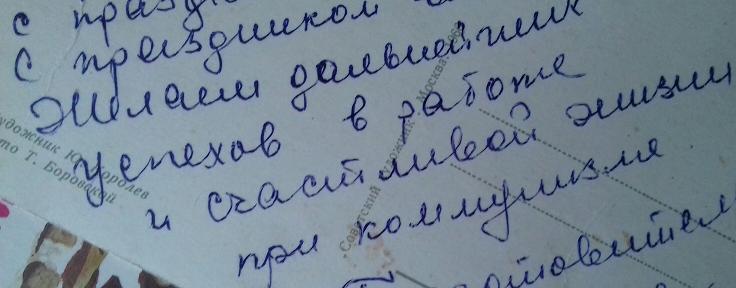 с праз
с праздником
Желаем дальнейших
успехов в работе
и счастливой жизни
при коммунизме
удожник Ю. Королев
то Т. Боровской
Советский художник Москва